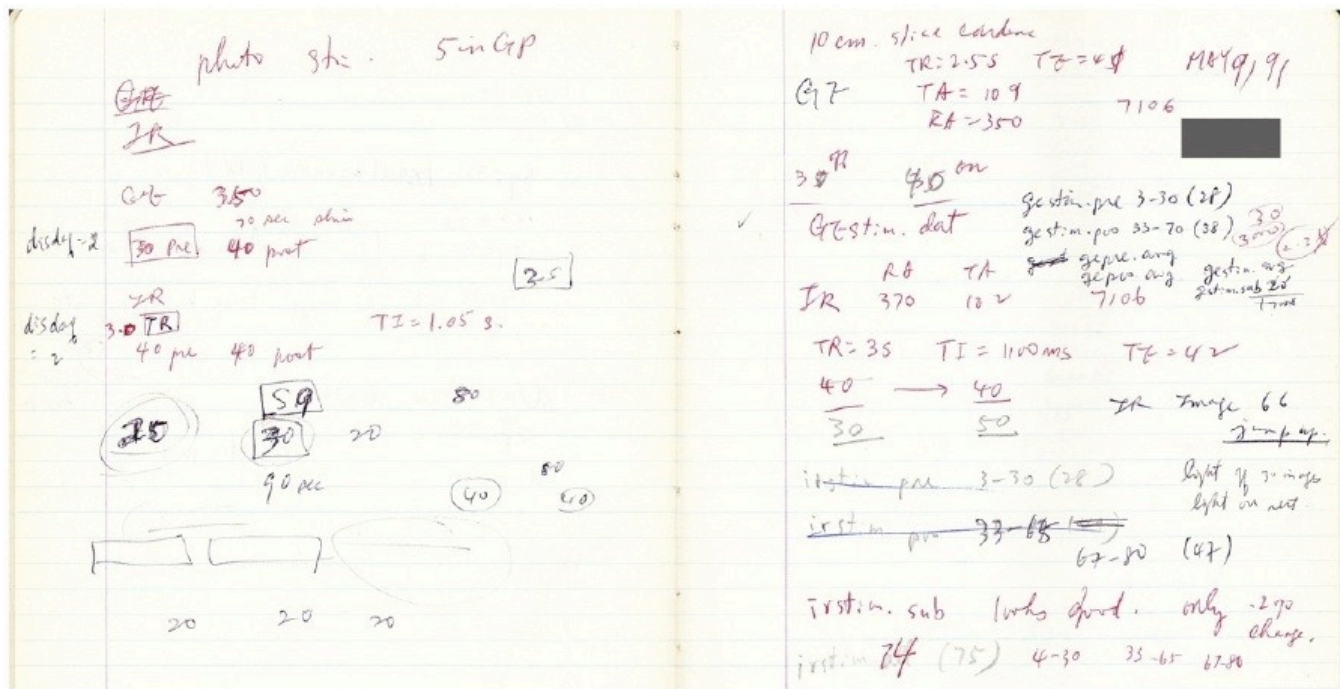 photo stim. 5 in GP
GE
IR
GE 350
30 sec stim
disdaq = 2 30 pre 40 post
2.5
IR
disdaq = 2 3.0 TR TI = 1.05 s.
40 pre 40 post
59 80
25 30 20
80
90 sec 40 40
20 20 20
10 cm. slice
TR = 2.5 s TE = 4 MAY 9, 91
GE TA = 109
7106
RA = 350
30 off 40 on
gestim.pre 3-30 (28)
GEstim. dat gestim.pos 33-70 (38) 30
(3000)
gepre.avg
gepos avg gestim.avg
gestim.sub
RA TA
IR 370 102 7106
TR = 3S TI = 1100 ms TE = 42
40 → 40
30 50
IR Image 66
jump up.
irstim pre 3-30 (28)
light off 30 images
light on next.
irstim pos 33-65
67-80 (47)
irstim. sub looks good. only -2% change.
irstim 74 (75) 4-30 33-65 67-80